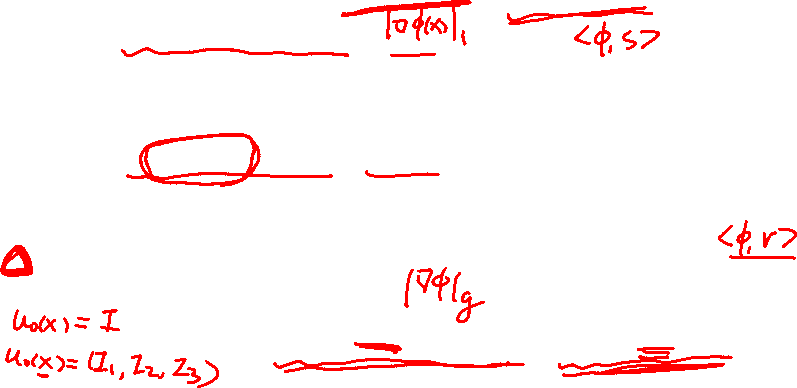 |∇ϕ(x)|₁
<ϕ, s>
<ϕ, r>
|∇ϕ|g
u₀(x) = I
u₀(x) = (I₁, I₂, I₃)